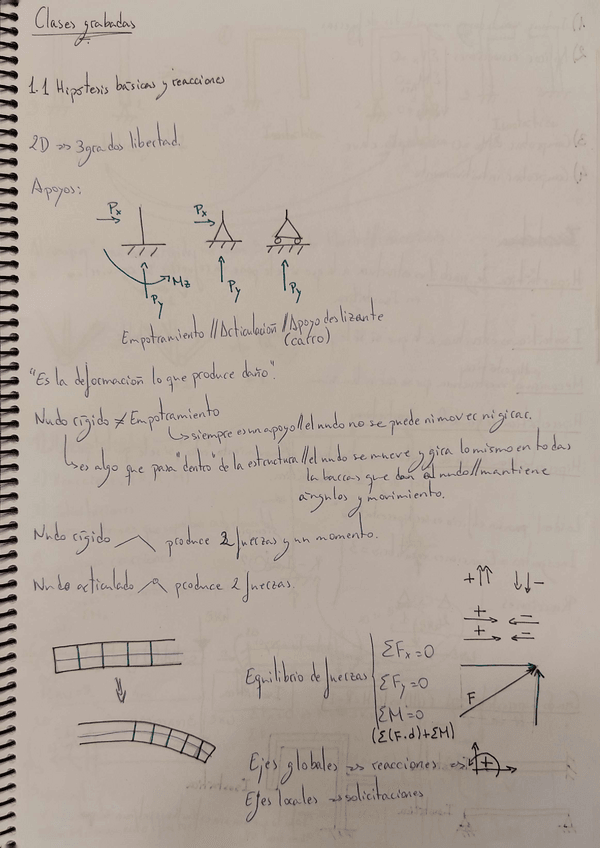 Clases grabadas
1.1 Hipotesis básicas y reacciones
2D => 3 grados libertad.
Apoyos:
Px Px
Mz
Py Py Py
Empotramiento // Articulación // Apoyo deslizante
(carro)
"Es la deformación lo que produce daño".
Nudo rígido ≠ Empotramiento
↳ siempre es un apoyo // el nudo no se puede ni mover ni girar.
↳ es algo que pasa "dentro" de la estructura // el nudo se mueve y gira lo mismo en todas
la barras que dan al nudo // mantiene
ángulos y movimiento.
Nudo rígido produce 2 fuerzas y un momento.
Nudo articulado produce 2 fuerzas.
+ ↑↑ ↓↓ -
+ -
+ -
Equilibrio de fuerzas
ΣFx = 0
ΣFy = 0
ΣM = 0
(Σ(F.d)+ΣM)
F
Ejes globales => reacciones => +
Ejes locales => solicitaciones